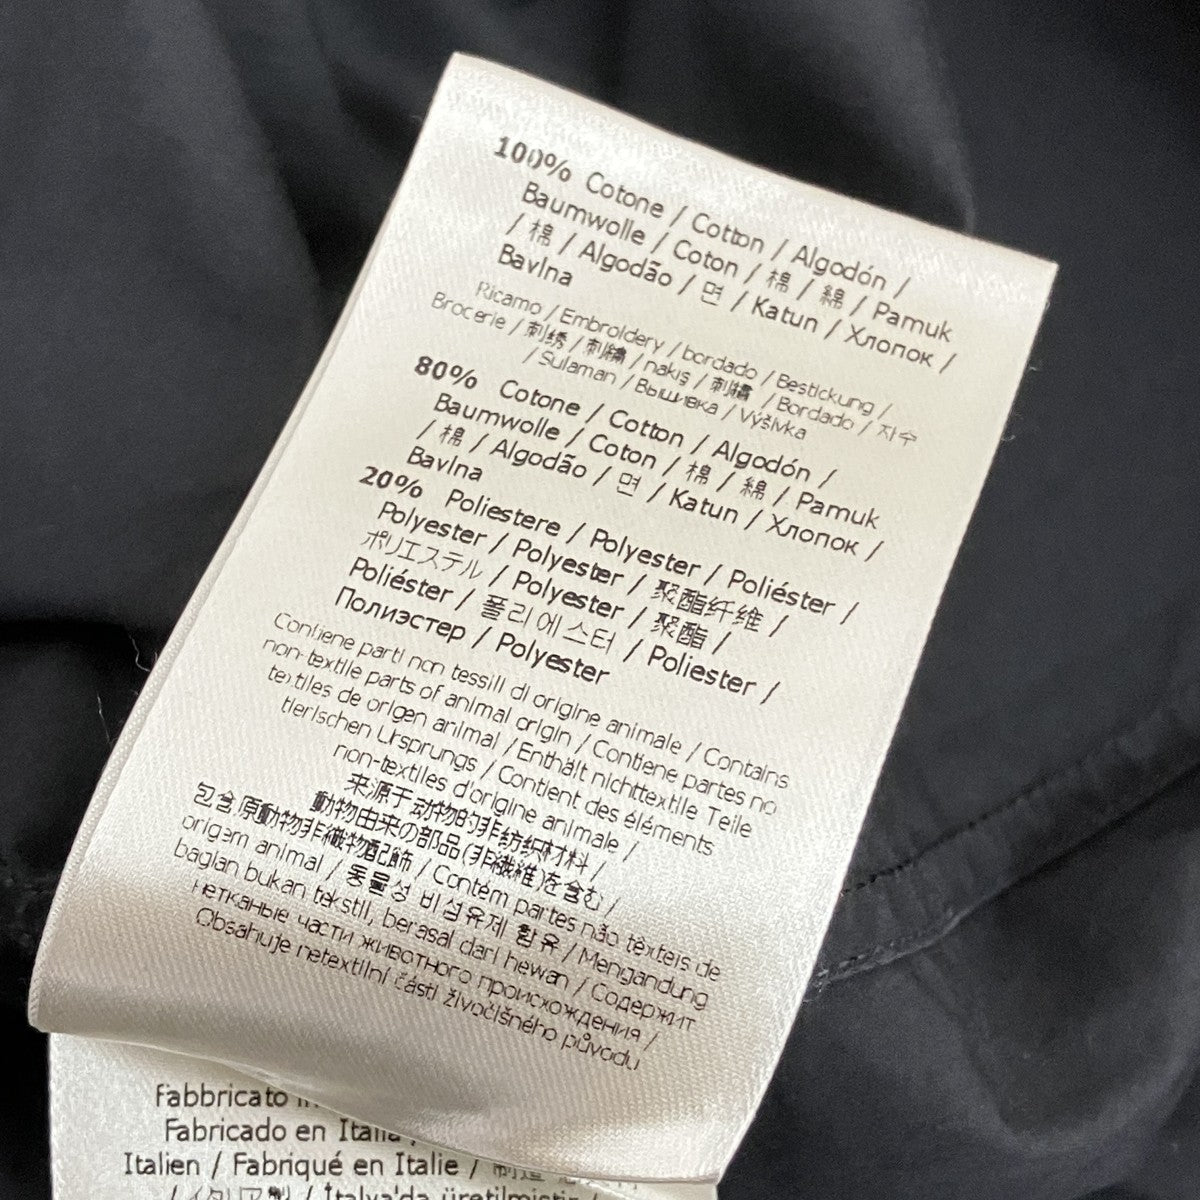 100% Cotone / Cotton / Algodón /
Baumwolle / Coton / 棉 / 綿 / Pamuk
/ 棉 / Algodão / 면 / Katun / Хлопок /
Bavlna
Ricamo / Embroidery / bordado / Bestickung /
Brocerie / 刺绣 / 刺繍 / nakış / 刺繡 / Bordado / 자수
/ Sulaman / Вышивка / Výšivka
80% Cotone / Cotton / Algodón /
Baumwolle / Coton / 棉 / 綿 / Pamuk
/ 棉 / Algodão / 면 / Katun / Хлопок /
Bavlna
20% Poliestere / Polyester / Poliéster /
Polyester / Polyester / 聚酯纤维 /
ポリエステル / Polyester / 聚酯 /
Poliéster / 폴리에스터 / Poliester /
Полиэстер / Polyester
Contiene parti non tessili di origine animale / Contains
non-textile parts of animal origin / Contiene partes no
textiles de origen animal / Enthält nichttextile Teile
tierischen Ursprungs / Contient des éléments
non-textiles d'origine animale /
来源于动物的非纺织材料 /
動物由来の部品(非繊維)を含む /
包含原動物非織物配飾 / Contém partes não têxteis de
origem animal / 동물성 비섬유제 함유 / Mengandung
bagian bukan tekstil, berasal dari hewan / Содержит
нетканые части животного происхождения /
Obsahuje netextilní části živočišného původu
Fabbricato in
Fabricado en Italia /
Italien / Fabriqué en Italie /
/ イタリア製 / İtalya'da üretilmiştir /